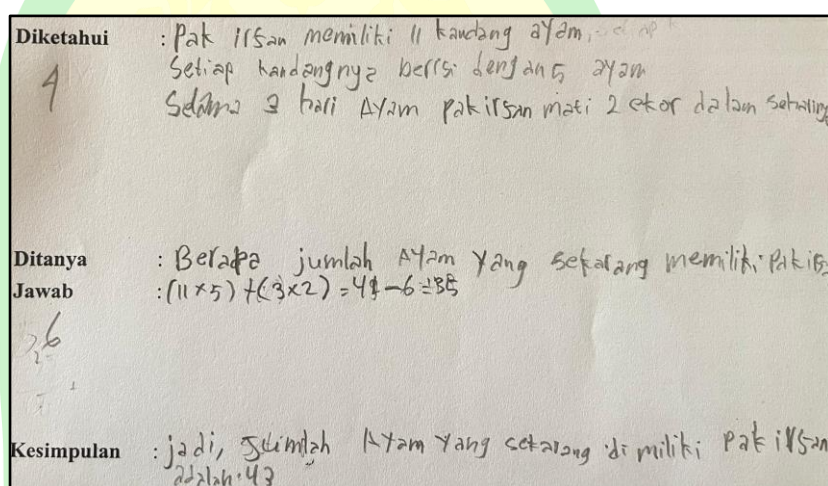 Diketahui : Pak irsan memiliki 11 kandang ayam,
4 Setiap kandangnya berisi dengan 5 ayam
Selama 3 hari Ayam pak irsan mati 2 ekor dalam
Ditanya : Berapa jumlah Ayam yang sekarang memiliki Pak
Jawab : (11 x 5) + (3 x 2) = 41 - 6 = 35
6
Kesimpulan : jadi, Jumlah Ayam yang sekarang di miliki pak irsan
adalah 43